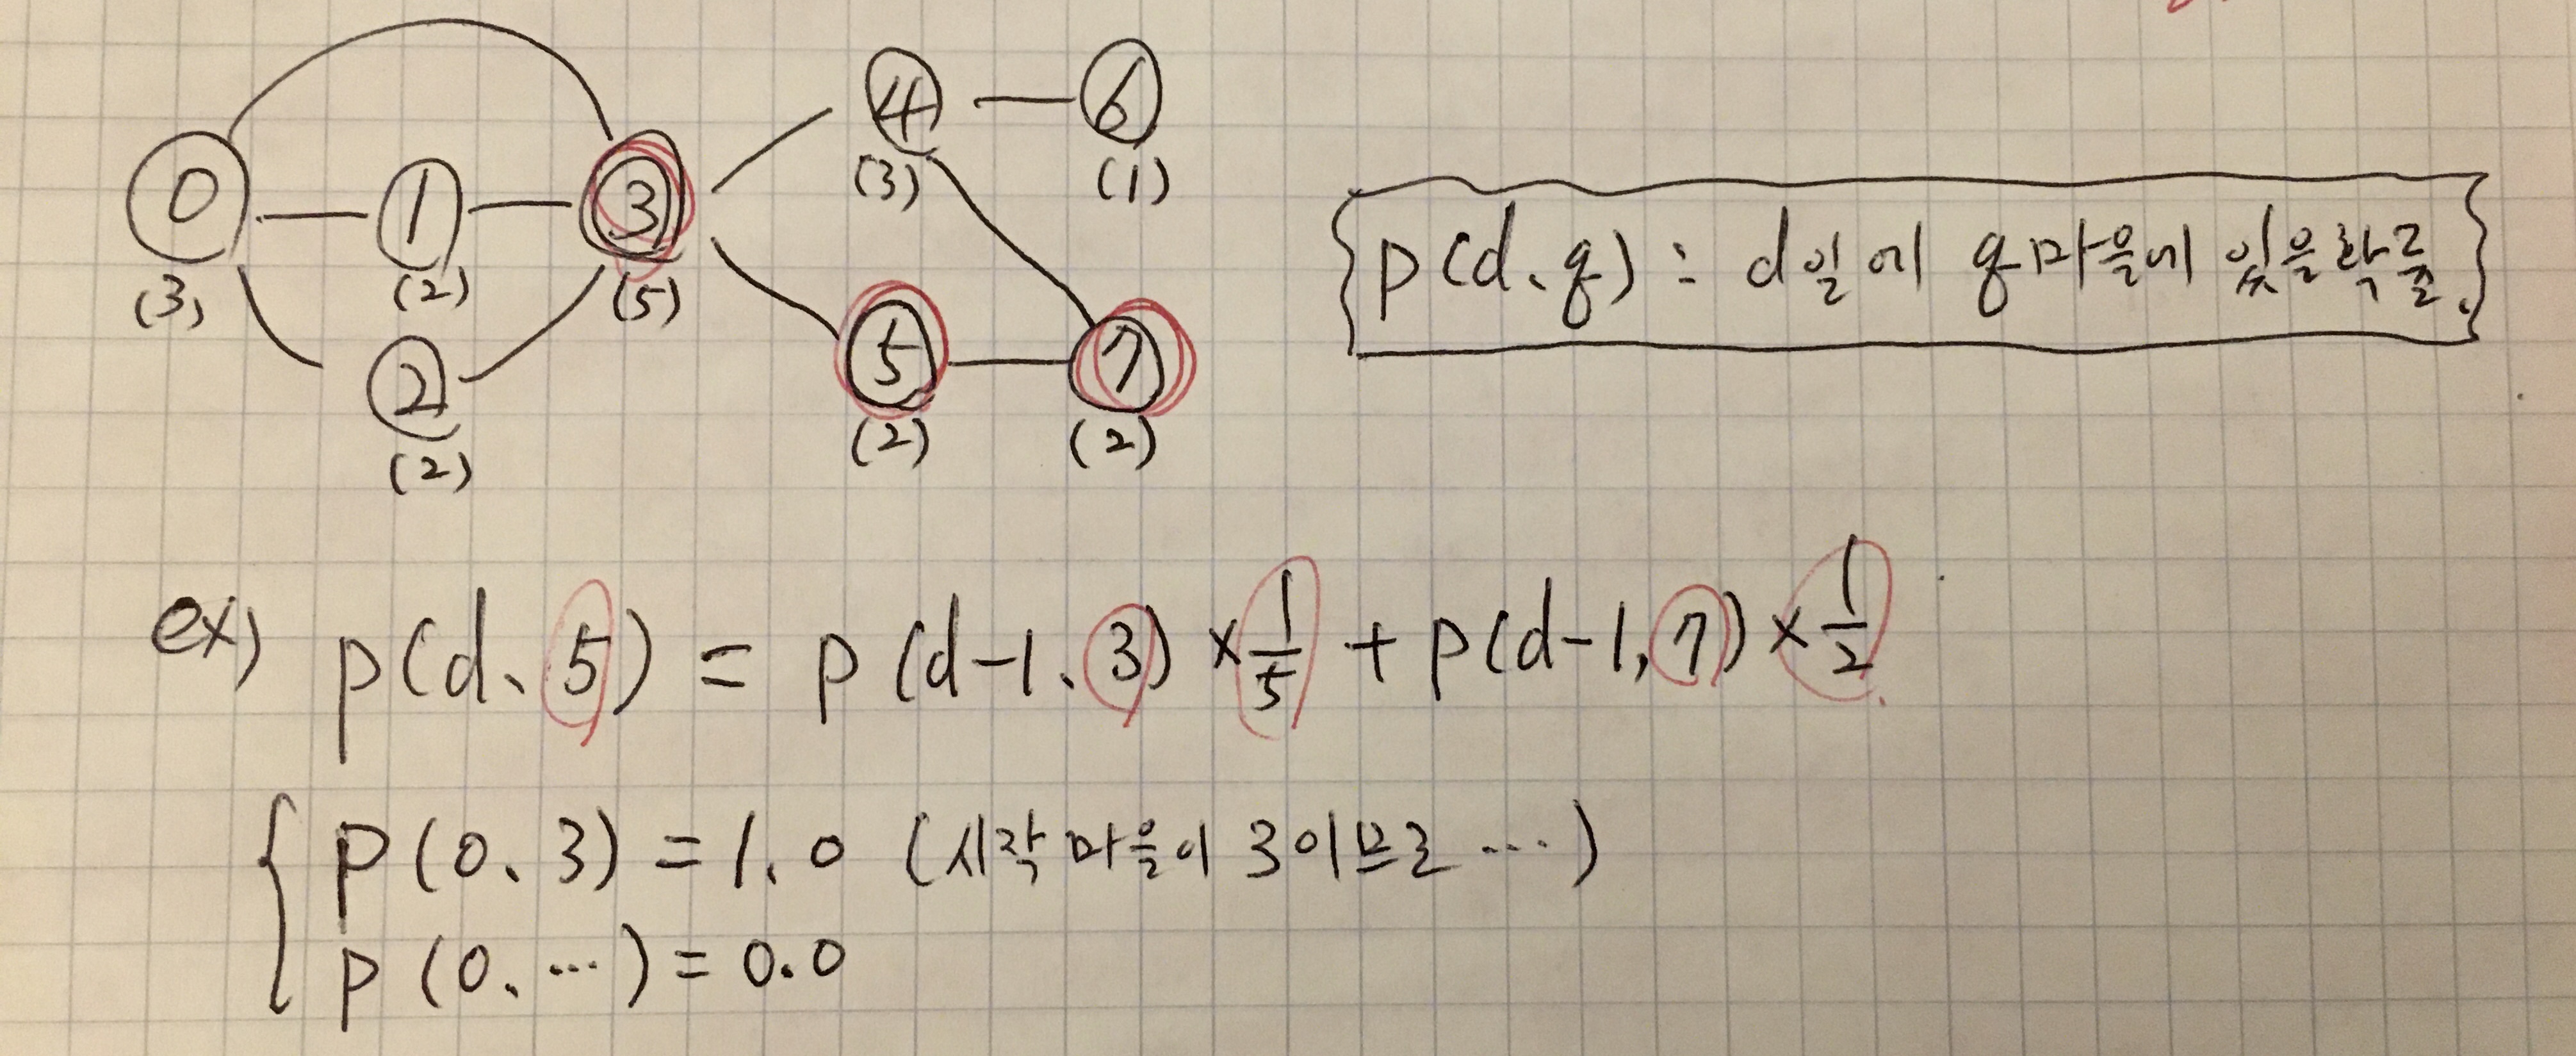 0 1 2 3 4 5 6 7
(3) (2) (2) (5) (3) (2) (1) (2)
p(d, q) : d일에 q마을에 있을확률.
ex) p(d, 5) = p(d-1, 3) × 1/5 + p(d-1, 7) × 1/2
p(0, 3) = 1.0 (시작마을이 3이므로 ...)
p(0, ...) = 0.0